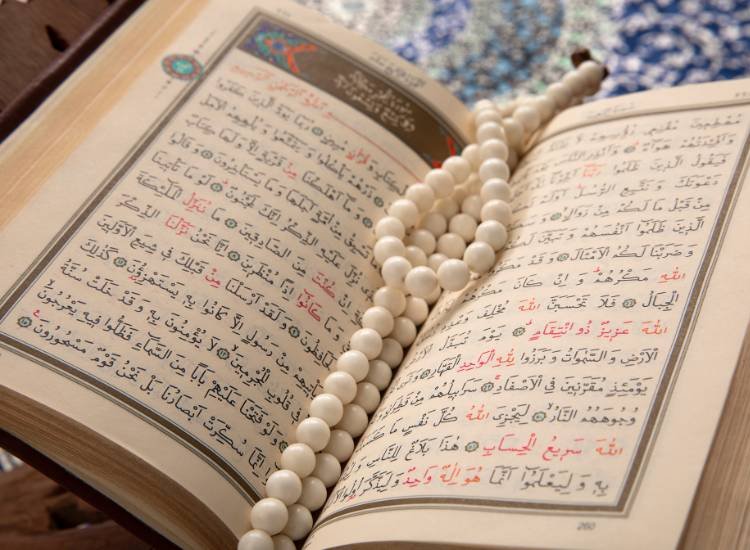 مُهْطِعِينَ مُقْنِعِي رُؤُسِهِمْ لَا
وَاَفْـِٔدَتُهُمْ هَوَاءٌ وَاَنْذِرِ النَّاسَ
فَيَقُولُ الَّذِينَ ظَلَمُوا رَبَّنَا اَخِّرْنَا
دَعْوَتَكَ وَنَتَّبِعِ الرُّسُلَ
مِنْ قَبْلُ مَا لَكُمْ مِنْ زَوَالٍ
الَّذِينَ ظَلَمُوا اَنْفُسَهُمْ وَتَبَيَّنَ
وَضَرَبْنَا لَكُمُ الْاَمْثَالَ وَقَدْ
اللّٰهِ مَكْرُهُمْ وَاِنْ كَانَ مَكْرُهُمْ
الْجِبَالُ فَلَا تَحْسَبَنَّ اللّٰهَ مُخْلِفَ وَعْدِهِ
اللّٰهَ عَزِيزٌ ذُو انْتِقَامٍ يَوْمَ تُبَدَّلُ الْاَرْضُ
الْاَرْضِ وَالسَّمٰوَاتُ وَبَرَزُوا لِلّٰهِ الْوَاحِدِ الْقَهَّارِ
يَوْمَئِذٍ مُقَرَّنِينَ فِي الْاَصْفَادِ سَرَابِيلُهُمْ مِنْ قَطِرَانٍ
وُجُوهَهُمُ النَّارُ لِيَجْزِيَ اللّٰهُ كُلَّ نَفْسٍ مَا
اللّٰهَ سَرِيعُ الْحِسَابِ هٰذَا بَلَاغٌ لِلنَّاسِ
بِهِ وَلِيَعْلَمُوا اَنَّمَا هُوَ اِلٰهٌ وَاحِدٌ وَلِيَذَّكَّرَ اُولُوا
260
مُبِينٍ رُبَمَا يَوَدُّ الَّذِينَ كَفَرُوا
ذَرْهُمْ يَأْكُلُوا وَيَتَمَتَّعُوا وَيُلْهِهِمُ الْاَمَلُ
وَمَا اَهْلَكْنَا مِنْ قَرْيَةٍ اِلَّا وَلَهَا كِتَابٌ
مِنْ اُمَّةٍ اَجَلَهَا وَمَا يَسْتَأْخِرُونَ وَقَالُوا
نُزِّلَ عَلَيْهِ الذِّكْرُ اِنَّكَ لَمَجْنُونٌ لَوْ مَا تَأْتِينَا
اِنْ كُنْتَ مِنَ الصَّادِقِينَ مَا نُنَزِّلُ الْمَلٰٓئِكَةَ
وَمَا كَانُوا اِذًا مُنْظَرِينَ اِنَّا نَحْنُ نَزَّلْنَا الذِّكْرَ
لَحَافِظُونَ وَلَقَدْ اَرْسَلْنَا مِنْ قَبْلِكَ فِي شِيَعِ الْاَوَّلِينَ
مِنْ رَسُولٍ اِلَّا كَانُوا بِهِ يَسْتَهْزِؤُنَ كَذٰلِكَ
فِي قُلُوبِ الْمُجْرِمِينَ لَا يُؤْمِنُونَ بِهِ وَقَدْ خَلَتْ سُنَّةُ
وَلَوْ فَتَحْنَا عَلَيْهِمْ بَابًا مِنَ السَّمَاءِ فَظَلُّوا فِيهِ يَعْرُجُونَ
اِنَّمَا سُكِّرَتْ اَبْصَارُنَا بَلْ نَحْنُ قَوْمٌ مَسْحُورُونَ